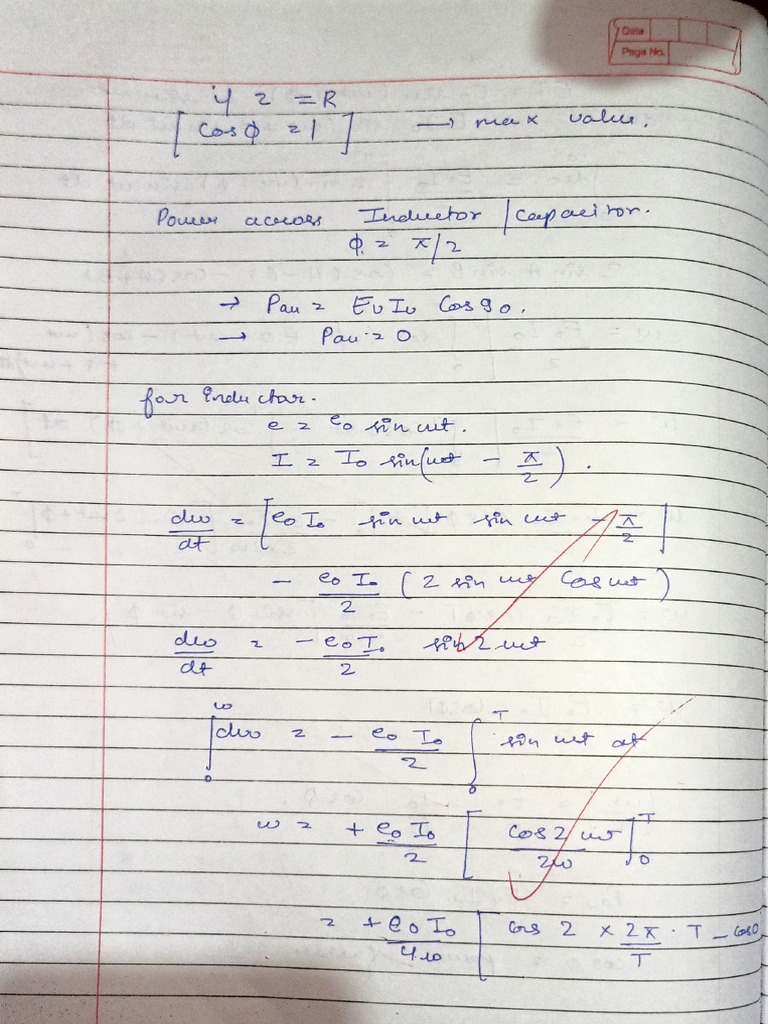 Date
Page No.
if z = R
[cosϕ = 1] → max value.
Power across Inductor / capacitor.
ϕ = π/2
→ Pav = Ev Iv Cos 90.
→ Pav = 0
for Inductor.
e = e₀ sin ωt.
I = I₀ sin(ωt - π/2).
dw/dt = [e₀ I₀ sin ωt sin ωt - π/2]
- e₀ I₀/2 (2 sin ωt Cos ωt)
dw/dt = - e₀ I₀/2 sin 2ωt
∫₀^w dw = - e₀ I₀/2 ∫₀^T sin ωt dt
w = + e₀ I₀/2 [cos 2ωt/2ω]₀^T
= + e₀ I₀/4ω [cos 2 × 2π/T · T - cos0